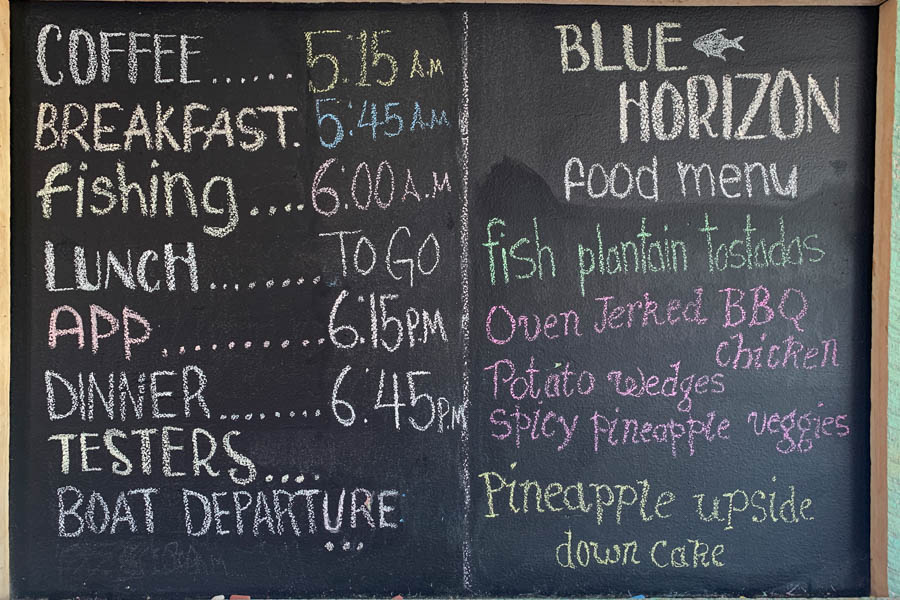 COFFEE...... 5:15 A.M
BREAKFAST. 5:45 A.M
fishing.... 6:00 A.M
LUNCH....... TO GO
APP.......... 6:15PM
DINNER....... 6:45PM
TESTERS....
BOAT DEPARTURE
...
BLUE
HORIZON
food menu
fish plantain tostadas
Oven Jerked BBQ
chicken
Potato wedges
spicy pineapple veggies
Pineapple upside
down cake